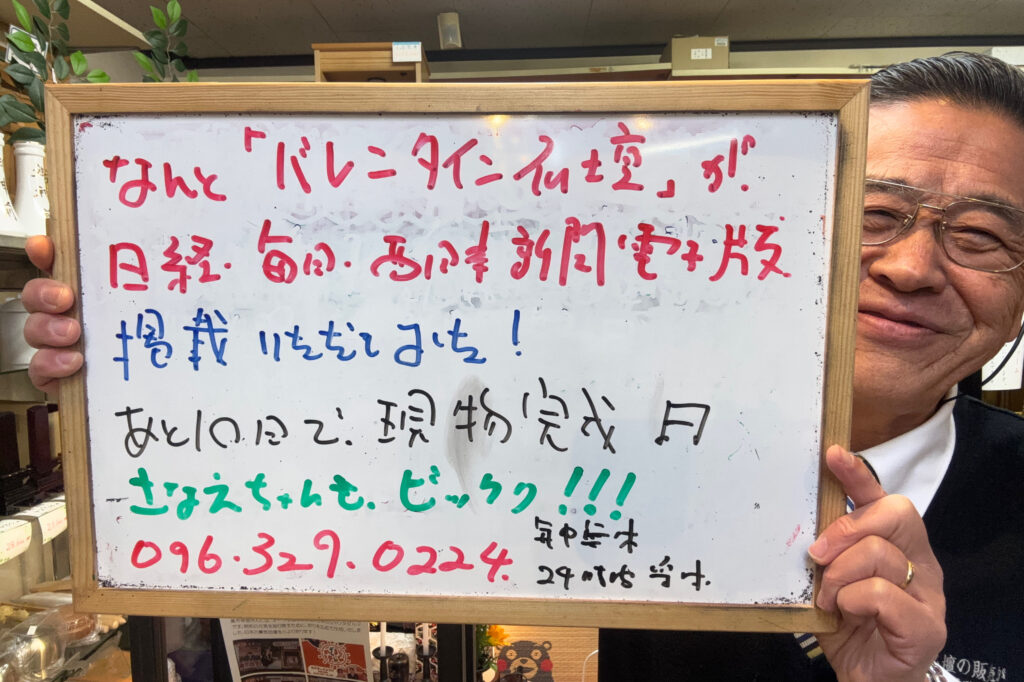 なんと「バレンタイン仏壇」が、
日経・毎日・西日本新聞電子版
掲載いただきました！
あと10日で、現物完成 日
さなえちゃんも、ビックリ!!!
096.329.0224.
年中無休
24時間営業.
壇の販